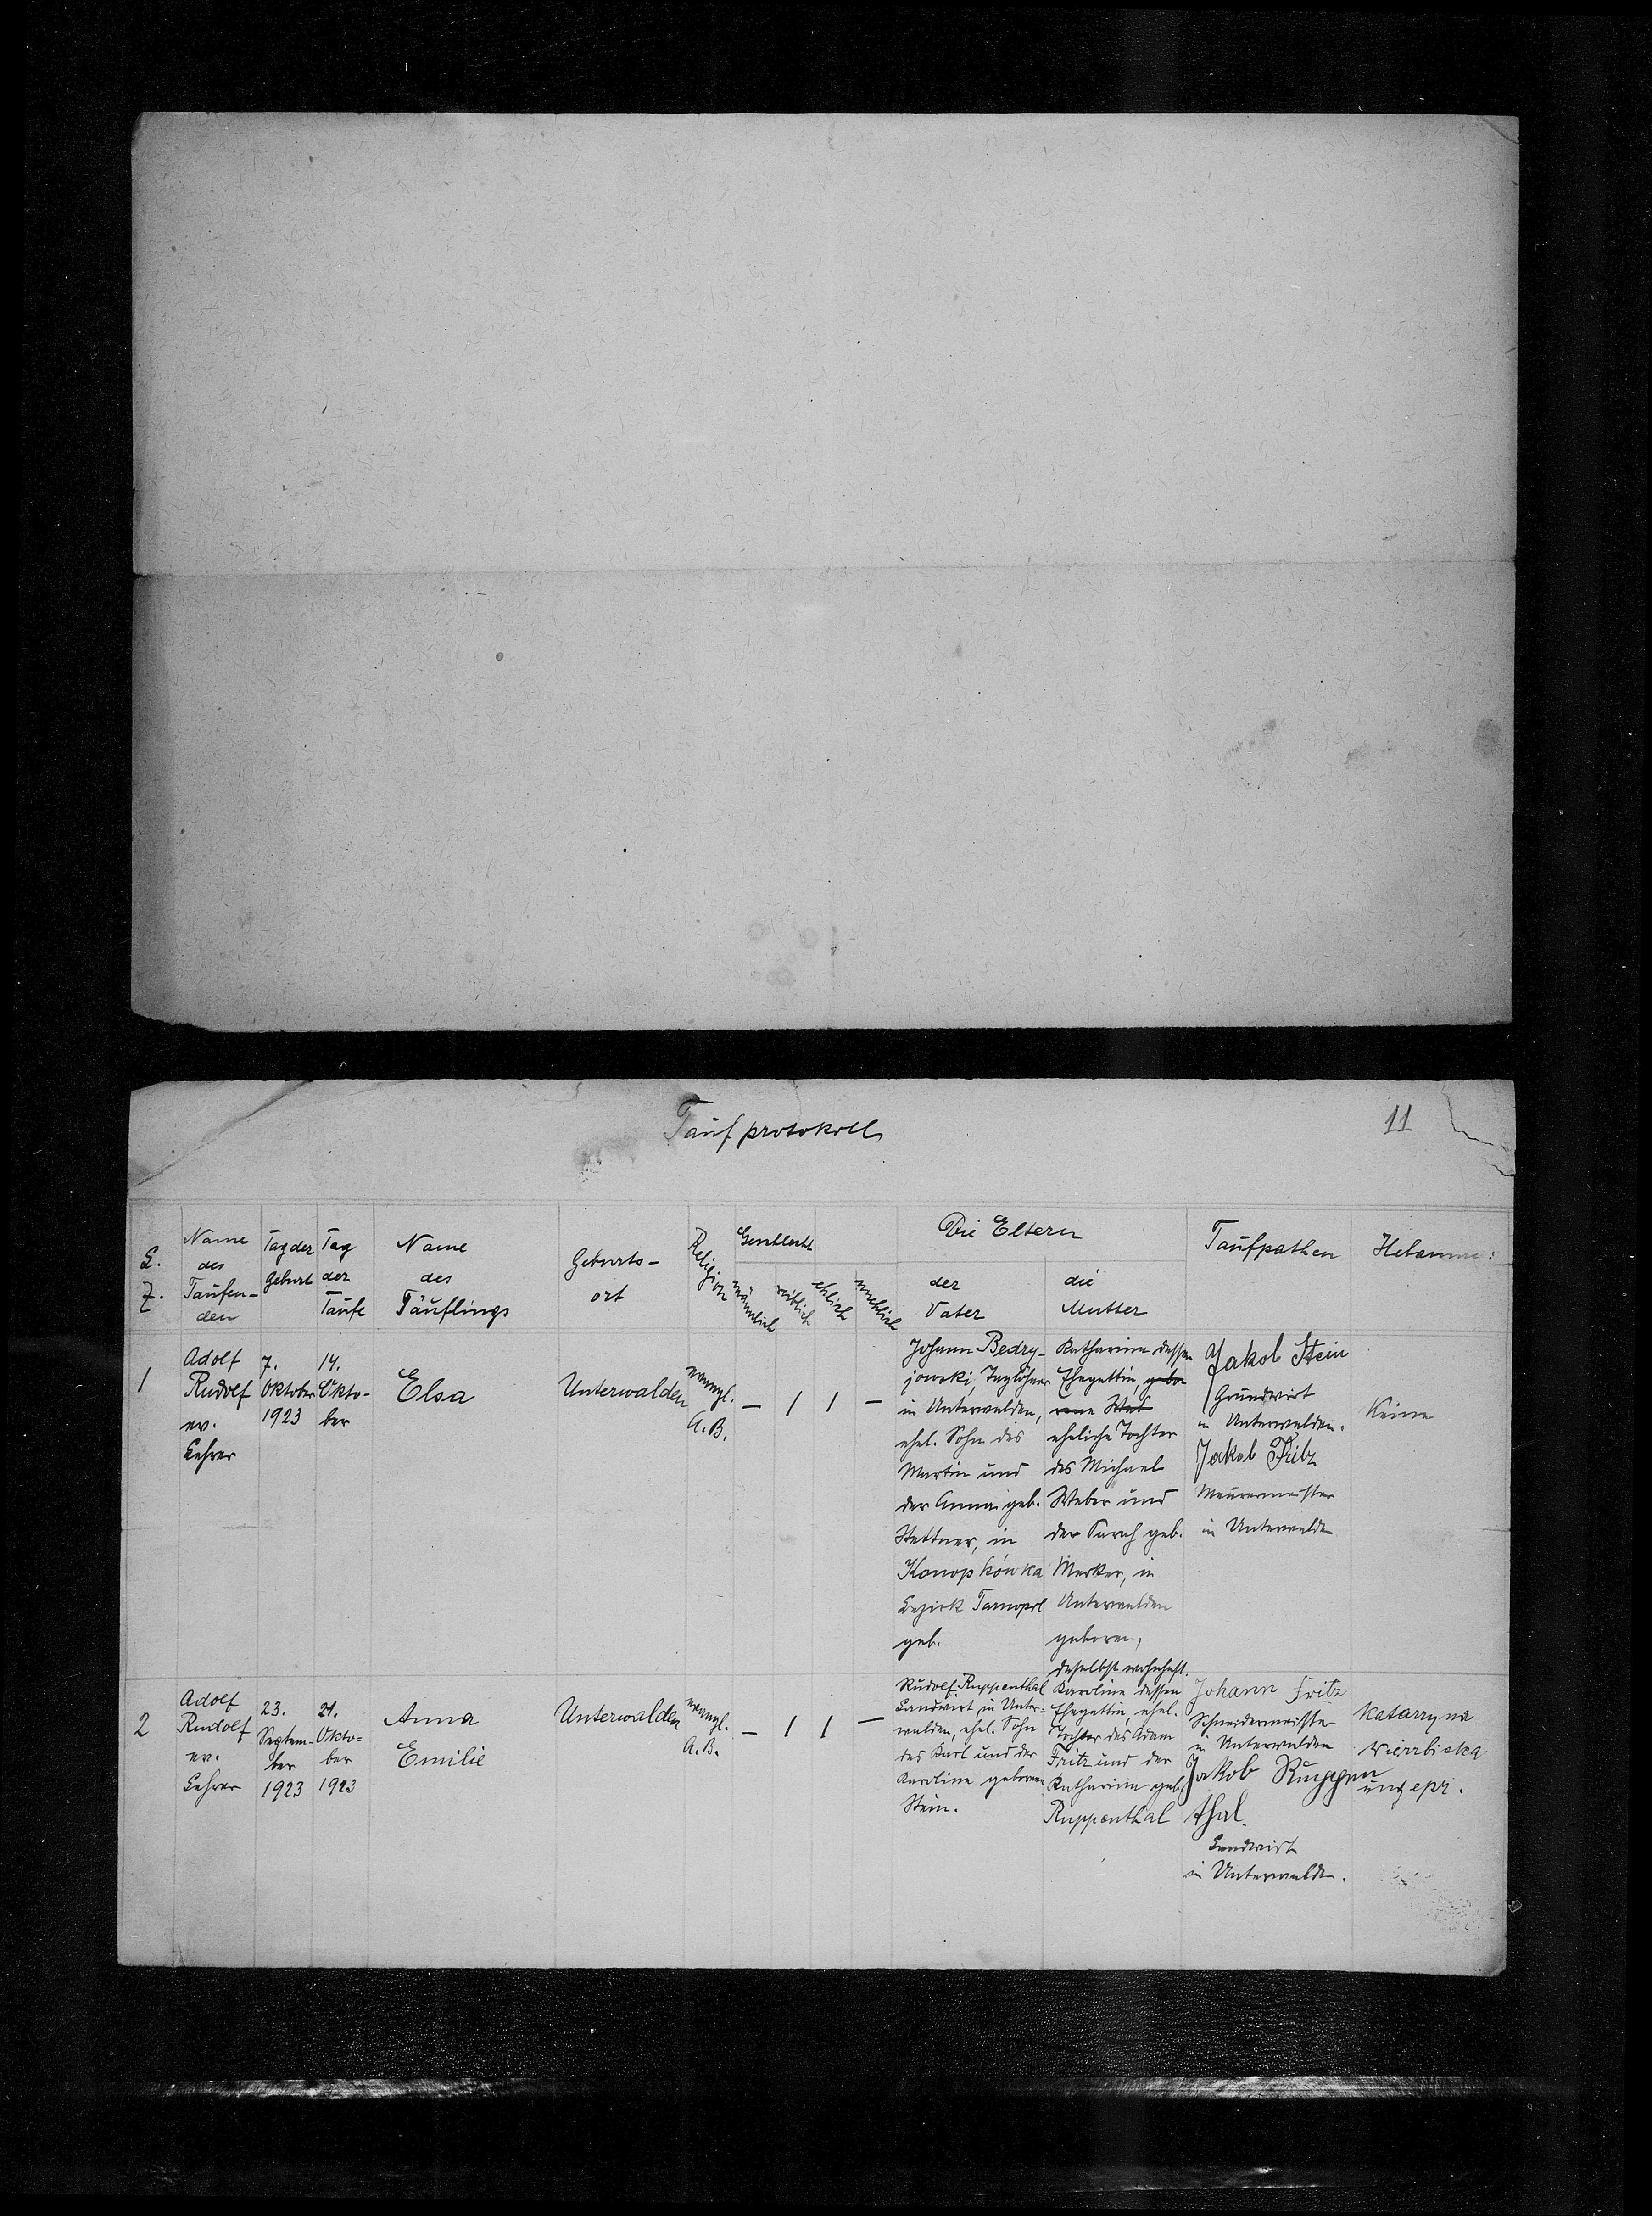 Taufprotokoll
11
L. Z.
Name des Taufen-den
Tag der Geburt
Tag der Taufe
Name des Täuflings
Geburts-ort
Religion
Geschlecht
männlich
weiblich
ehlich
unehlich
Die Eltern
der Vater
die Mutter
Taufpathen
Hebamme:
1
Adolf
Rudolf
ev.
Lehrer
7.
Oktober
1923
14.
Okto-
ber
Elsa
Unterwalden
evangl.
A.B.
—
1
1
—
Johann Bedry-
jowski, Taglöhner
in Unterwalden,
ehel. Sohn des
Martin und
der Anna geb.
Hettner, in
Konopkówka
Bezirk Tarnopol
geb.
Katharina dessen
Ehegattin, gebo-
rene Web
eheliche Tochter
des Michael
Weber und
der Sarah geb.
Merker, in
Unterwalden
geboren,
daselbst wohnhaft.
Jakob Stein
Grundwirt
in Unterwalden.
Jakob Fritz
Maurermeister
in Unterwalden
Keine
2
Adolf
Rudolf
ev.
Lehrer
23.
Septem-
ber
1923
21.
Okto-
ber
1923
Anna
Emilie
Unterwalden
evangl.
A.B.
—
1
1
—
Rudolf Ruppenthal
Landwirt in Unter-
walden, ehel. Sohn
des Karl und der
Karoline geborene
Stein.
Karoline dessen
Ehegattin, ehel.
Tochter des Adam
Fritz und der
Katharina geb.
Ruppenthal
Johann Fritz
Schneidermeister
in Unterwalden
Jakob Ruppen
thal.
Landwirt
in Unterwalden.
Katarzyna
Wierzbicka
ungepr.